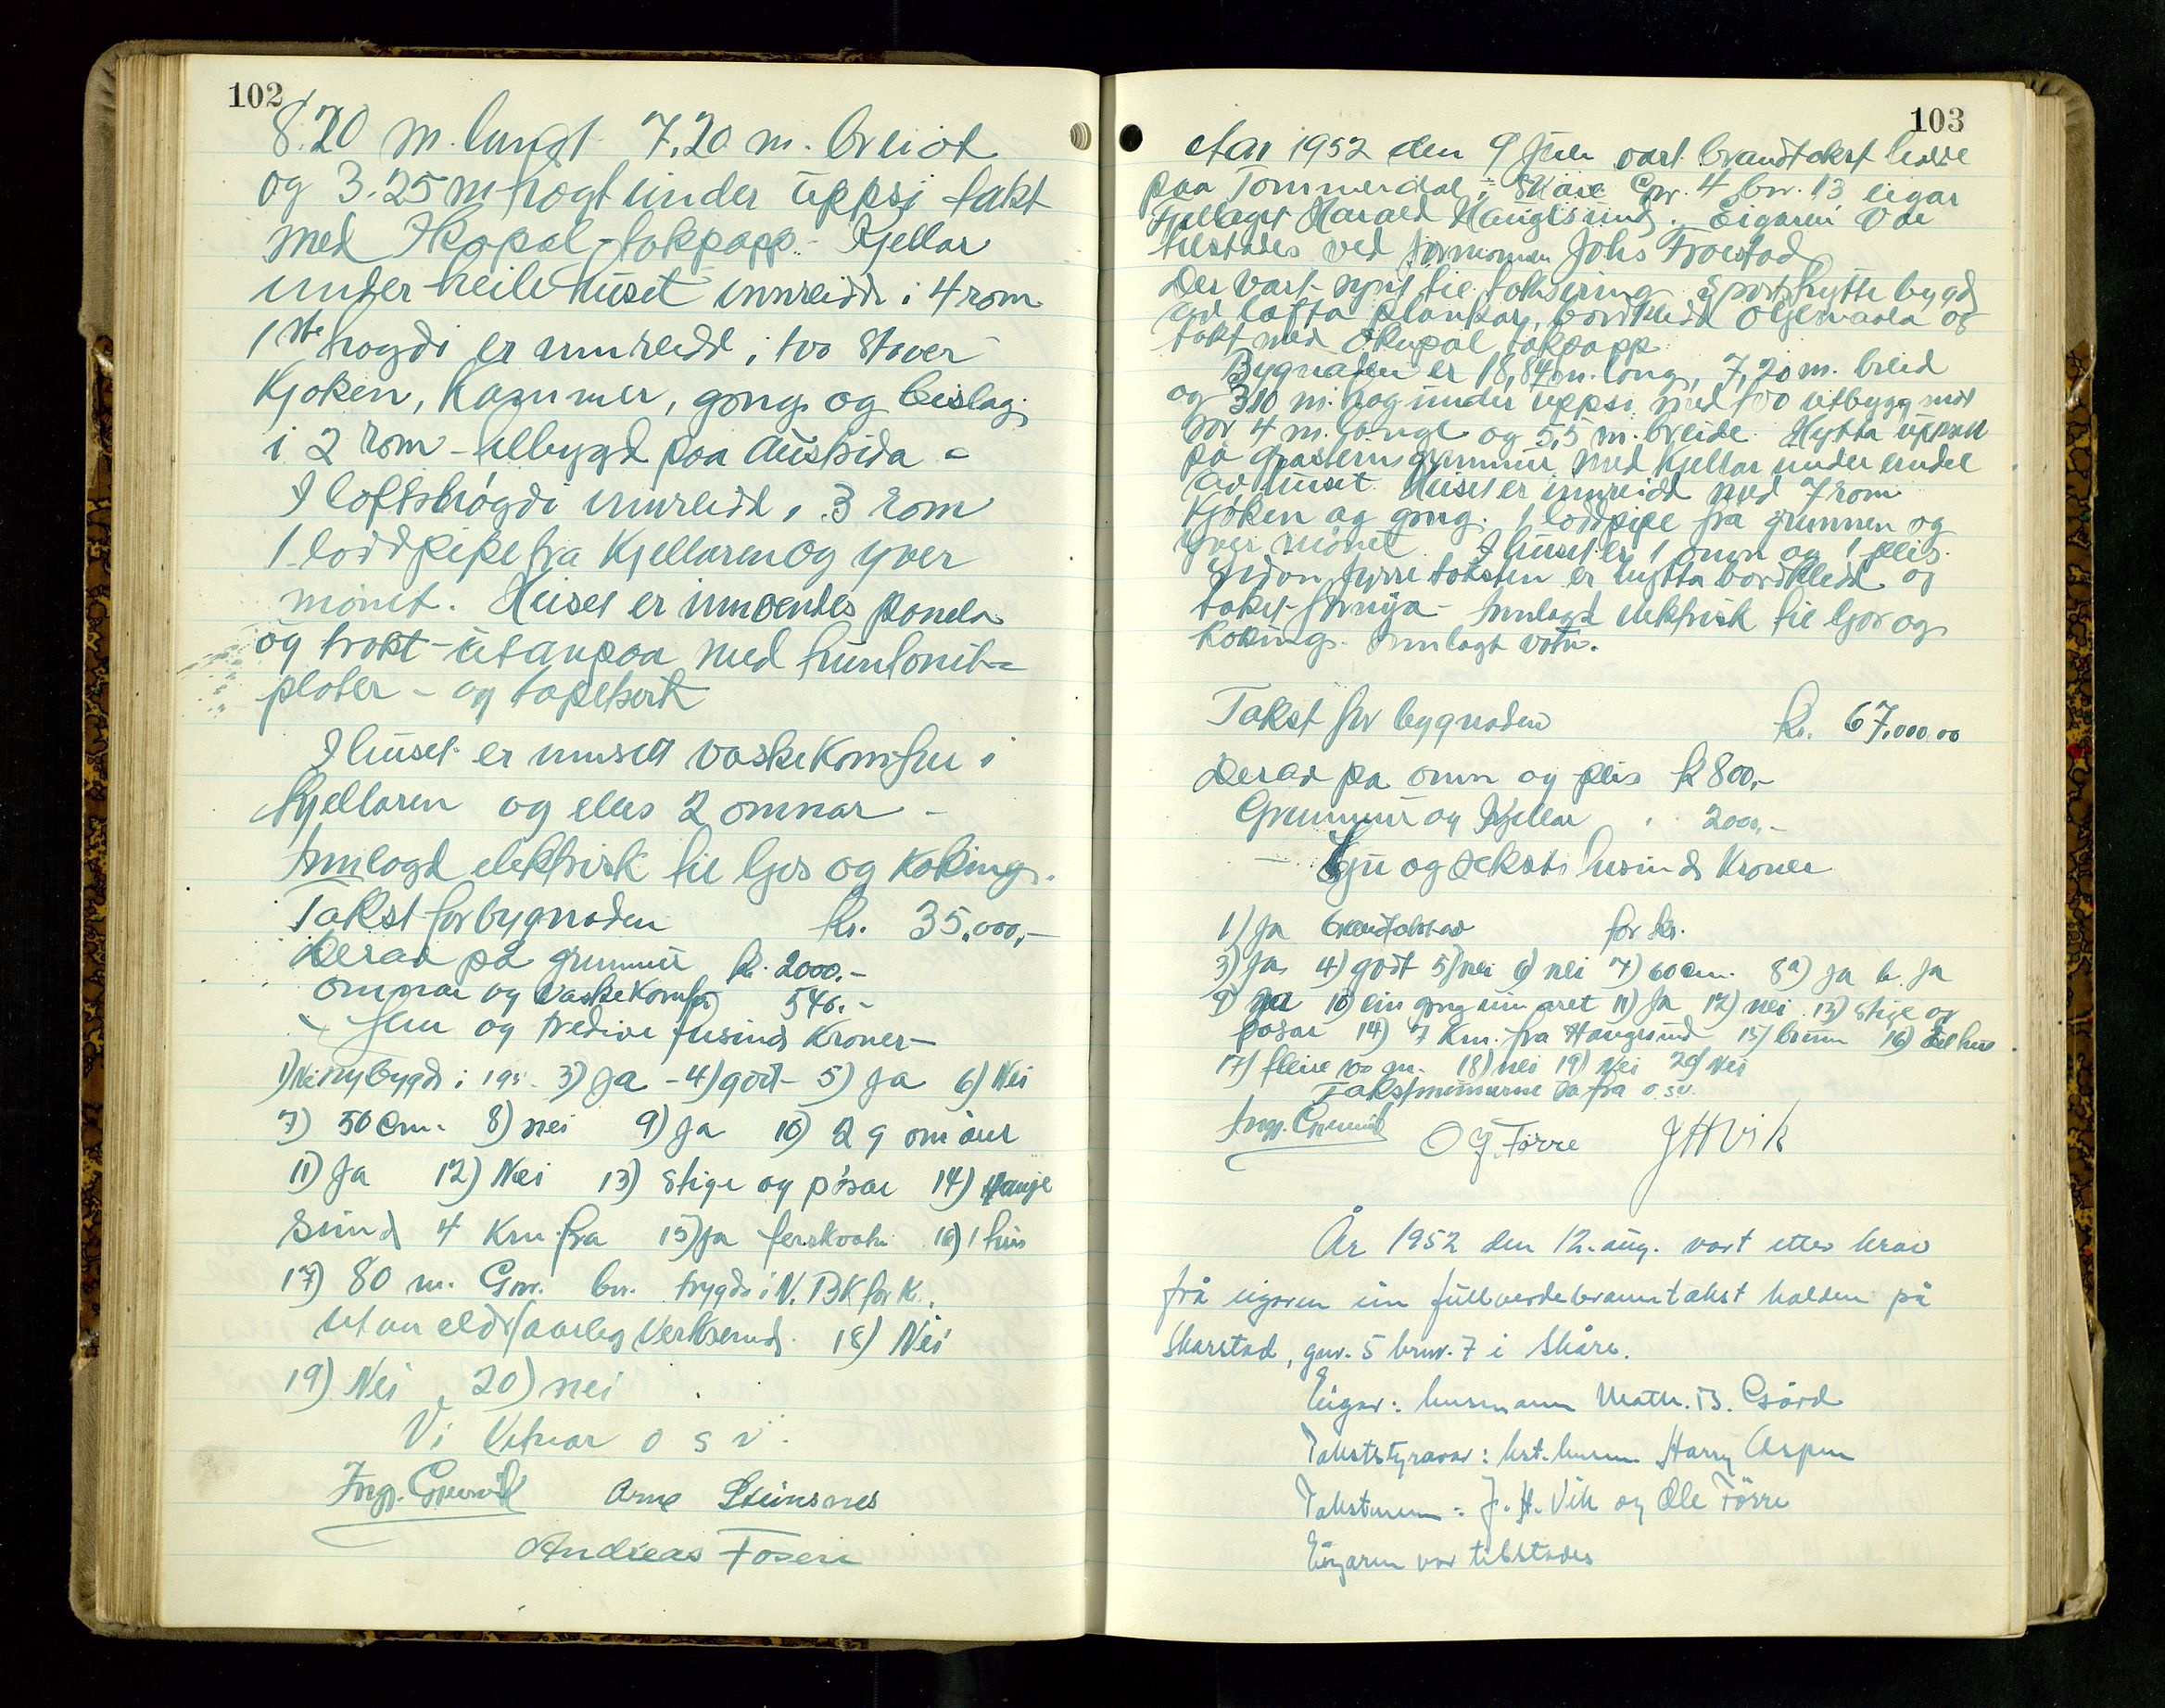 102
8.20 m. langt 7,20 m. breidt
og 3.25 m høgt under uppsi takt
med Ikopal-takpapp. - Kjellar
under heile huset innreidd i 4 rom
1ste høgdi er innreidd i tvo stover
Kjøken, Kammer, gong og beislag
i 2 rom - tilbygd paa Austsida -
I loftshøgdi innreidd i 3 rom
1 loddpipe fra Kjellaren og yver
mønet. Huset er innvendes panela
og trekt - utanpaa med huntonit-
plater - og tapetsert
I huset er innsett vaskekomfur i
Kjellaren og elles 2 omnar -
Innlagd elektrisk til ljos og Koking.
Takst for bygnaden kr. 35.000,-
Derav på grunnur kr. 2000.-
omnar og vaskekomfur 546.-
fem og tredive tusind Kroner -
1) Nei nybygd i 3) Ja - 4) godt - 5) Ja 6) Nei
7) 50 Cm. 8) nei 9) Ja 10) 2 g om året
11) Ja 12) Nei 13) Stige og pøsar 14) Hauge
sund 4 Km fra 15) Ja ferskvatn 16) 1 hus
17) 80 m. Gnr. bn. trygda i N. BK for Kr.
utan eldsfaarleg Verksemd. 18) Nei
19) Nei, 20) nei
Vi vitnar o s v.
Ingv. Arne Steinsnes
Andreas Fosen
103
Aar 1952 den 9 Juli vart brandtakst halde
paa Tømmerdal i Skåre Gnr. 4 bn. 13 eigar
Fjellaget Harald Haugesund. Eigaren var
tilstades ved formannen Johs Troestad
Der vart synt til taksering Sportshytte bygd
av lafta plankar, bordkledd oljemaala og
takt med Ikopal takpapp
Bygnaden er 18,84 m. lang, 7,20 m. breid
og 3.10 m. høg under uppsi med tvo utbygg mot
nor 4 m. lange og 5,5 m. breide. Hytta uppsett
på gråsteinsgrunnur med Kjellar under endel
av huset. Huset er innreidd med 7 rom
Kjøken og gong. 1 loddpipe fra grunnen og
yver mønet. I huset er 1 omn og 1 peis.
Sidan fyrre taksten er hytta bordkledd og
taket fornya - Innlagd elektrisk til ljos og
Koking. Innlagt vatn.
Takst for bygnaden kr. 67.000.00
Derav på omn og peis kr 800,-
Grunnur og Kjellar " 2000,-
Sju og seksti tusind Kroner
1) Ja brandtakstad for kr.
3) Ja 4) godt 5) nei 6) nei 7) 60 cm. 8a) Ja b. Ja
9) Ja 10) ein gong um aret 11) Ja 12) nei 13) Stige og
pøsar 14) 7 Km. fra Haugesund 15) brunn 16) hus
17) fleire 100 m. 18) nei 19) Nei 20) Nei
Takstmennerne sa fra o.s.v.
Ingv. O J. Førre J H Vik
År 1952 den 12. aug. vart etter krav
frå eigaren ein fullverdebranntakst halden på
Skarstad, gnr. 5 brnr. 7 i Skåre.
Eigar: husmann Math. B. Gård
Takststyrar: lensm. Harry Aspen
Takstmenn: J. H. Vik og Ole Førre
Eigaren var tilstades